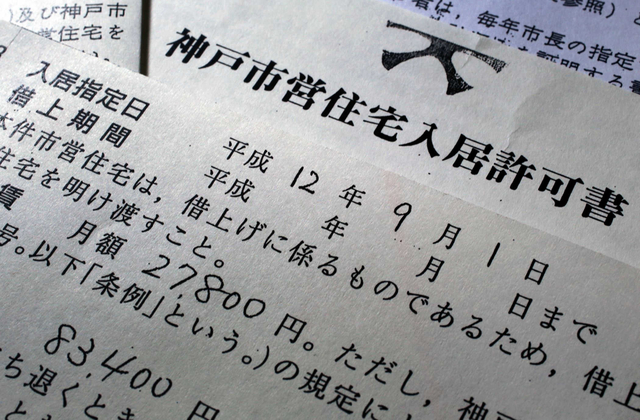 及び神戸市
営住宅を
参照）
者は，毎年市長の指定
を証明する書
神戸市営住宅入居許可書
入居指定日 平成 12 年 9 月 1 日
借上期間 平成 年 月 日まで
本件市営住宅は，借上げに係るものであるため，借上
住宅を明け渡すこと。
賃 月額 27,800 円。ただし，神戸
号。以下「条例」という。）の規定に
83,400 円
ち退くとき